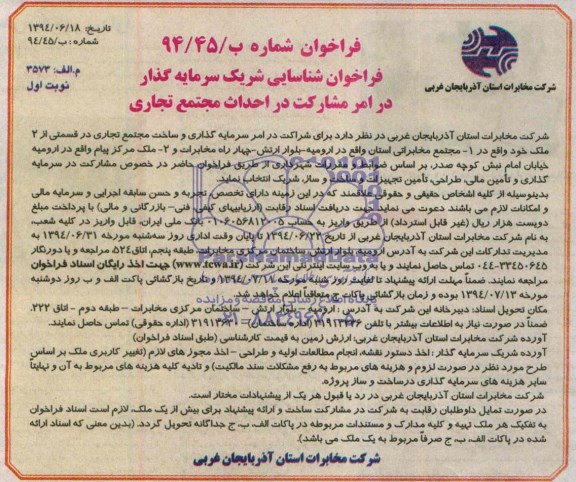 تاریخ: ۱۳۹۴/۰۶/۱۸
شماره: ب/۹۴/۴۵
م.الف: ۳۵۷۳
نوبت اول
فراخوان شماره ب/۹۴/۴۵
فراخوان شناسایی شریک سرمایه گذار
در امر مشارکت در احداث مجتمع تجاری
شرکت مخابرات استان آذربایجان غربی
شرکت مخابرات استان آذربایجان غربی در نظر دارد برای شراکت در امر سرمایه گذاری و ساخت مجتمع تجاری در قسمتی از ۲
ملک خود واقع در ۱- مجتمع مخابراتی استان واقع در ارومیه-بلوار ارتش-چهار راه مخابرات و ۲- ملک مرکز پیام واقع در ارومیه
خیابان امام نبش کوچه صدر، بر اساس ضوابط و مقررات شهرداری از طریق فراخوان حاضر در خصوص مشارکت در سرمایه
گذاری و تأمین مالی، طراحی، تأمین تجهیزات و ساخت و ساز، شریک انتخاب نماید.
بدینوسیله از کلیه اشخاص حقیقی و حقوقی علاقمند که در این زمینه دارای تخصص، تجربه و حسن سابقه اجرایی و سرمایه مالی
و امکانات لازم می باشند دعوت می نماید جهت دریافت اسناد رقابت (ارزیابیهای کیفی، فنی- بازرگانی و مالی) با پرداخت مبلغ
دویست هزار ریال (غیر قابل استرداد) از طریق واریز به حساب ۰۱۰۶۰۵۶۸۱۲۰۰۵ بانک ملی ایران، قابل واریز در کلیه شعب،
به نام شرکت مخابرات استان آذربایجان غربی از تاریخ ۱۳۹۴/۰۶/۲۲ تا پایان وقت اداری روز سه‌شنبه مورخه ۱۳۹۴/۰۶/۳۱ به
مدیریت تدارکات این شرکت به آدرس ارومیه، بلوار ارتش، ساختمان مرکزی مخابرات، طبقه پنجم، اتاق ۵۲۴، مراجعه و یا دورنگار
۰۴۴-۳۳۴۵۰۶۴۵ تماس حاصل نمایند و یا به وب سایت اینترنتی این شرکت (www.tcwa.ir) جهت اخذ رایگان اسناد فراخوان
مراجعه نمایند. ضمناً مهلت ارائه پیشنهاد تا غایت روز شنبه مورخه و تاریخ بازگشائی پاکات الف و ب روز دوشنبه
مورخه ۱۳۹۴/۰۷/۱۳ بوده و زمان بازگشائی پاکات ج متعاقباً اعلام خواهد شد.
مکان تحویل اسناد: دبیرخانه این شرکت به آدرس: ارومیه – بلوار ارتش – ساختمان مرکزی مخابرات – طبقه دوم – اتاق ۲۲۲.
ضمناً در صورت نیاز به اطلاعات بیشتر با تلفن ۳۱۹۱۲۶۳۶ (اداره ساختمان) – ۳۱۹۱۳۶۳۱ (اداره حقوقی) تماس حاصل نمایند.
آورده شرکت مخابرات استان آذربایجان غربی: ارزش زمین به قیمت کارشناسی (طبق اسناد فراخوان)
آورده شریک سرمایه گذار: اخذ دستور نقشه، انجام مطالعات اولیه و طراحی – اخذ مجوز های لازم (تغییر کاربری ملک بر اساس
طرح مورد نظر در صورت لزوم و هزینه های مربوط به رفع مشکلات سند مالکیت) و تادیه کلیه هزینه های مربوط به آن و نهایتاً
سایر هزینه های سرمایه گذاری درساخت و ساز پروژه.
شرکت مخابرات استان آذربایجان غربی در رد یا قبول هر یک از پیشنهادات مختار است.
در صورت تمایل داوطلبان رقابت به شرکت در مشارکت ساخت و ارائه پیشنهاد برای بیش از یک ملک، لازم است اسناد فراخوان
به تفکیک هر ملک تهیه و کلیه مدارک و مستندات مربوطه در پاکات الف، ب، ج جداگانه تحویل گردد. (بدین معنی که اسناد ارائه
شده در پاکات الف، ب، ج صرفاً مربوط به یک ملک می باشد).
شرکت مخابرات استان آذربایجان غربی